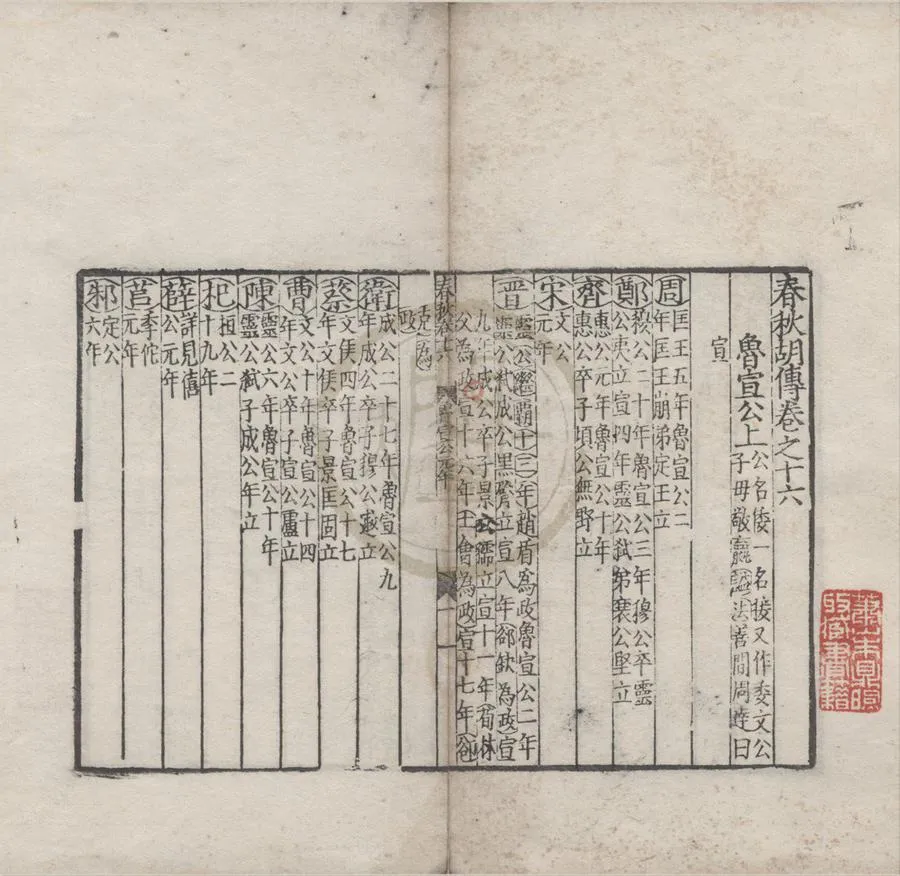 春秋胡傳卷之十六
魯宣公上
公名倭一名接又作委文公
子母敬嬴謚法善問周達曰
宣
周
匡王五年魯宣公二
年匡王崩弟定王立
鄭
穆公二十年魯宣公三年穆公卒靈
公夷立宣四年靈公弒弟襄公堅立
齊
惠公元年魯宣公十年
惠公卒子頃公無野立
宋
文公
元年
晉
靈公繼霸十三年趙盾為政魯宣公二年
靈公弒成公黑臀立宣八年郤缺為政宣
九年成公卒子景公獳立宣十一年荀林
父為政宣十六年士會為政宣十七年郤
克為
政
衛
成公二十七年魯宣公九
年成公卒子穆公遬立
蔡
文侯四年魯宣公十七
年文侯卒子景固立
曹
文公十年魯宣公十四
年文公卒子宣公盧立
陳
靈公六年魯宣公十年
靈公弒子成公午立
杞
桓公二
十九年
薛
詳見僖
公元年
莒
季佗
元年
邾
定公
六年